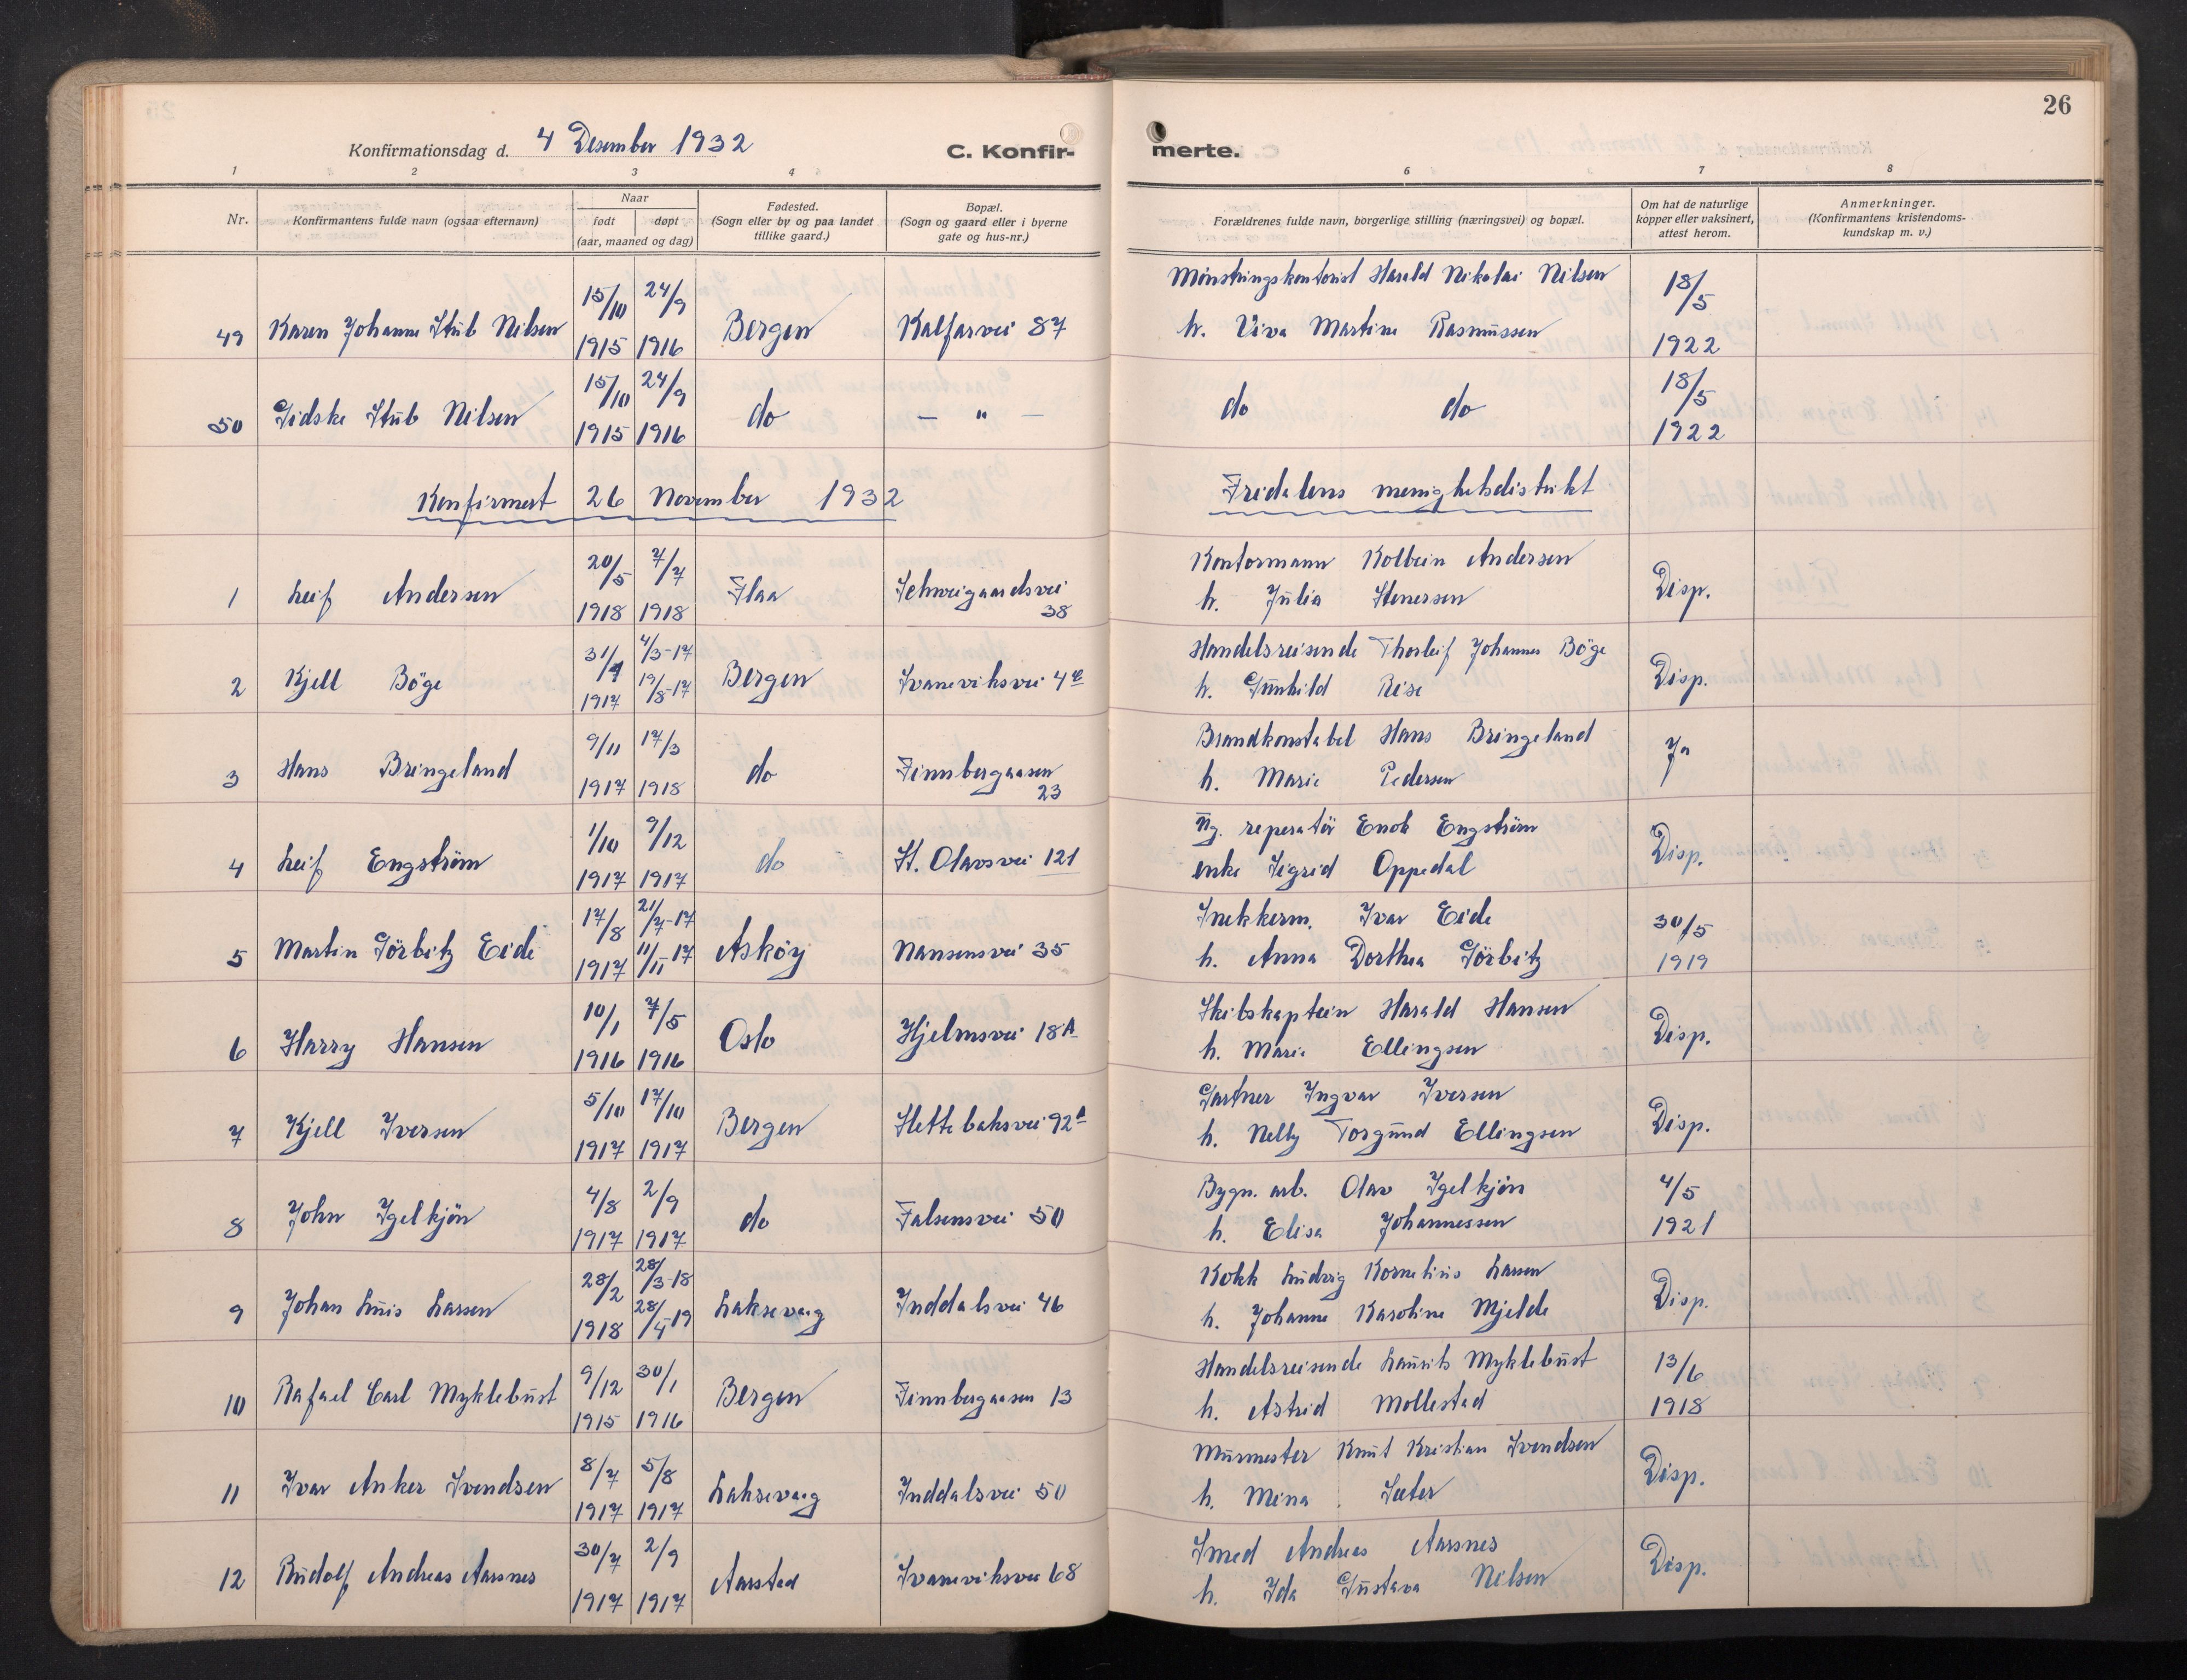 26
Konfirmationsdag d. 4 Desember 1932
C. Konfir- merte.
1 2 3 4 6 7 8
Nr.
Konfirmantens fulde navn (ogsaa efternavn)
Naar
født døpt
(aar, maaned og dag)
Fødested.
(Sogn eller by og paa landet
tillike gaard.)
Bopæl.
(Sogn og gaard eller i byerne
gate og hus-nr.)
Forældrenes fulde navn, borgerlige stilling (næringsvei) og bopæl.
Om hat de naturlige
kopper eller vaksinert,
attest herom.
Anmerkninger.
(Konfirmantens kristendoms-
kundskap m. v.)
15/10 24/9 Mönstringskontorist Harald Nikolai Nilsen 18/5
49 Karen Johanne Stub Nilsen 1915 1916 Bergen Kalfarvei 87 h. Viva Martine Rasmussen 1922
15/10 24/9 18/5
50 Gidske Stub Nilsen 1915 1916 do — " — do do 1922
Konfirmert 26 November 1932 Fridalens menighetsdistrikt
20/5 7/7 Kontormann Kolbein Andersen
1 Leif Andersen 1918 1918 Flaa Schweigaardsvei 38 h. Julia Stenersen Disp.
31/1 4/3-17 Handelsreisende Thorleif Johannes Böge
2 Kjell Böge 1917 19/8-17 Bergen Svaneviksvei 4 h. Gunhild Reise Disp.
9/11 17/3 Brandkonstabel Hans Bringeland
3 Hans Bringeland 1917 1918 do Finnbergaasen 23 h. Marie Pedersen Ja
1/10 9/12 reperatör Enok Engström
4 Leif Engström 1917 1917 do St. Olavsvei 121 enke Sigrid Oppedal Disp.
17/8 21/7-17 Snekkerm. Ivar Eide 30/5
5 Martin Görbitz Eide 1917 11/11 17 Asköy Nansensvei 35 h. Anna Dorthea Görbitz 1919
10/1 7/5 Skibskaptein Harald Hansen
6 Harry Hansen 1916 1916 Oslo Hjelmsvei 18A h. Marie Ellingsen Disp.
5/10 17/10 Gartner Ingvar Iversen
7 Kjell Iversen 1917 1917 Bergen Slettebaksvei 92A h. Nelly Torgund Ellingsen Disp.
4/8 2/9 Bygn. arb. Olav Igelkjön 4/5
8 John Igelkjön 1917 1917 do Falsensvei 50 h. Elisa Johannessen 1921
28/2 28/3-18 Kokk Ludvig Kornelius Larsen
9 Johan Luis Larsen 1918 28/4-19 Laksevaag Inddalsvei 46 h. Johanne Karoline Mjelde Disp.
9/12 30/1 Handelsreisende Laurits Myklebust 13/6
10 Rafael Carl Myklebust 1915 1916 Bergen Finnbergaasen 13 h. Astrid Mollestad 1918
8/7 5/8 Murmester Knut Kristian Svendsen
11 Ivar Anker Svendsen 1917 1917 Laksevaag Inddalsvei 50 h. Mina Sæter Disp.
30/7 2/9 Smed Andreas Aarsnes
12 Rudolf Andreas Aarsnes 1917 1917 Aarstad Svaneviksvei 68 h. Ida Gustava Nilsen Disp.